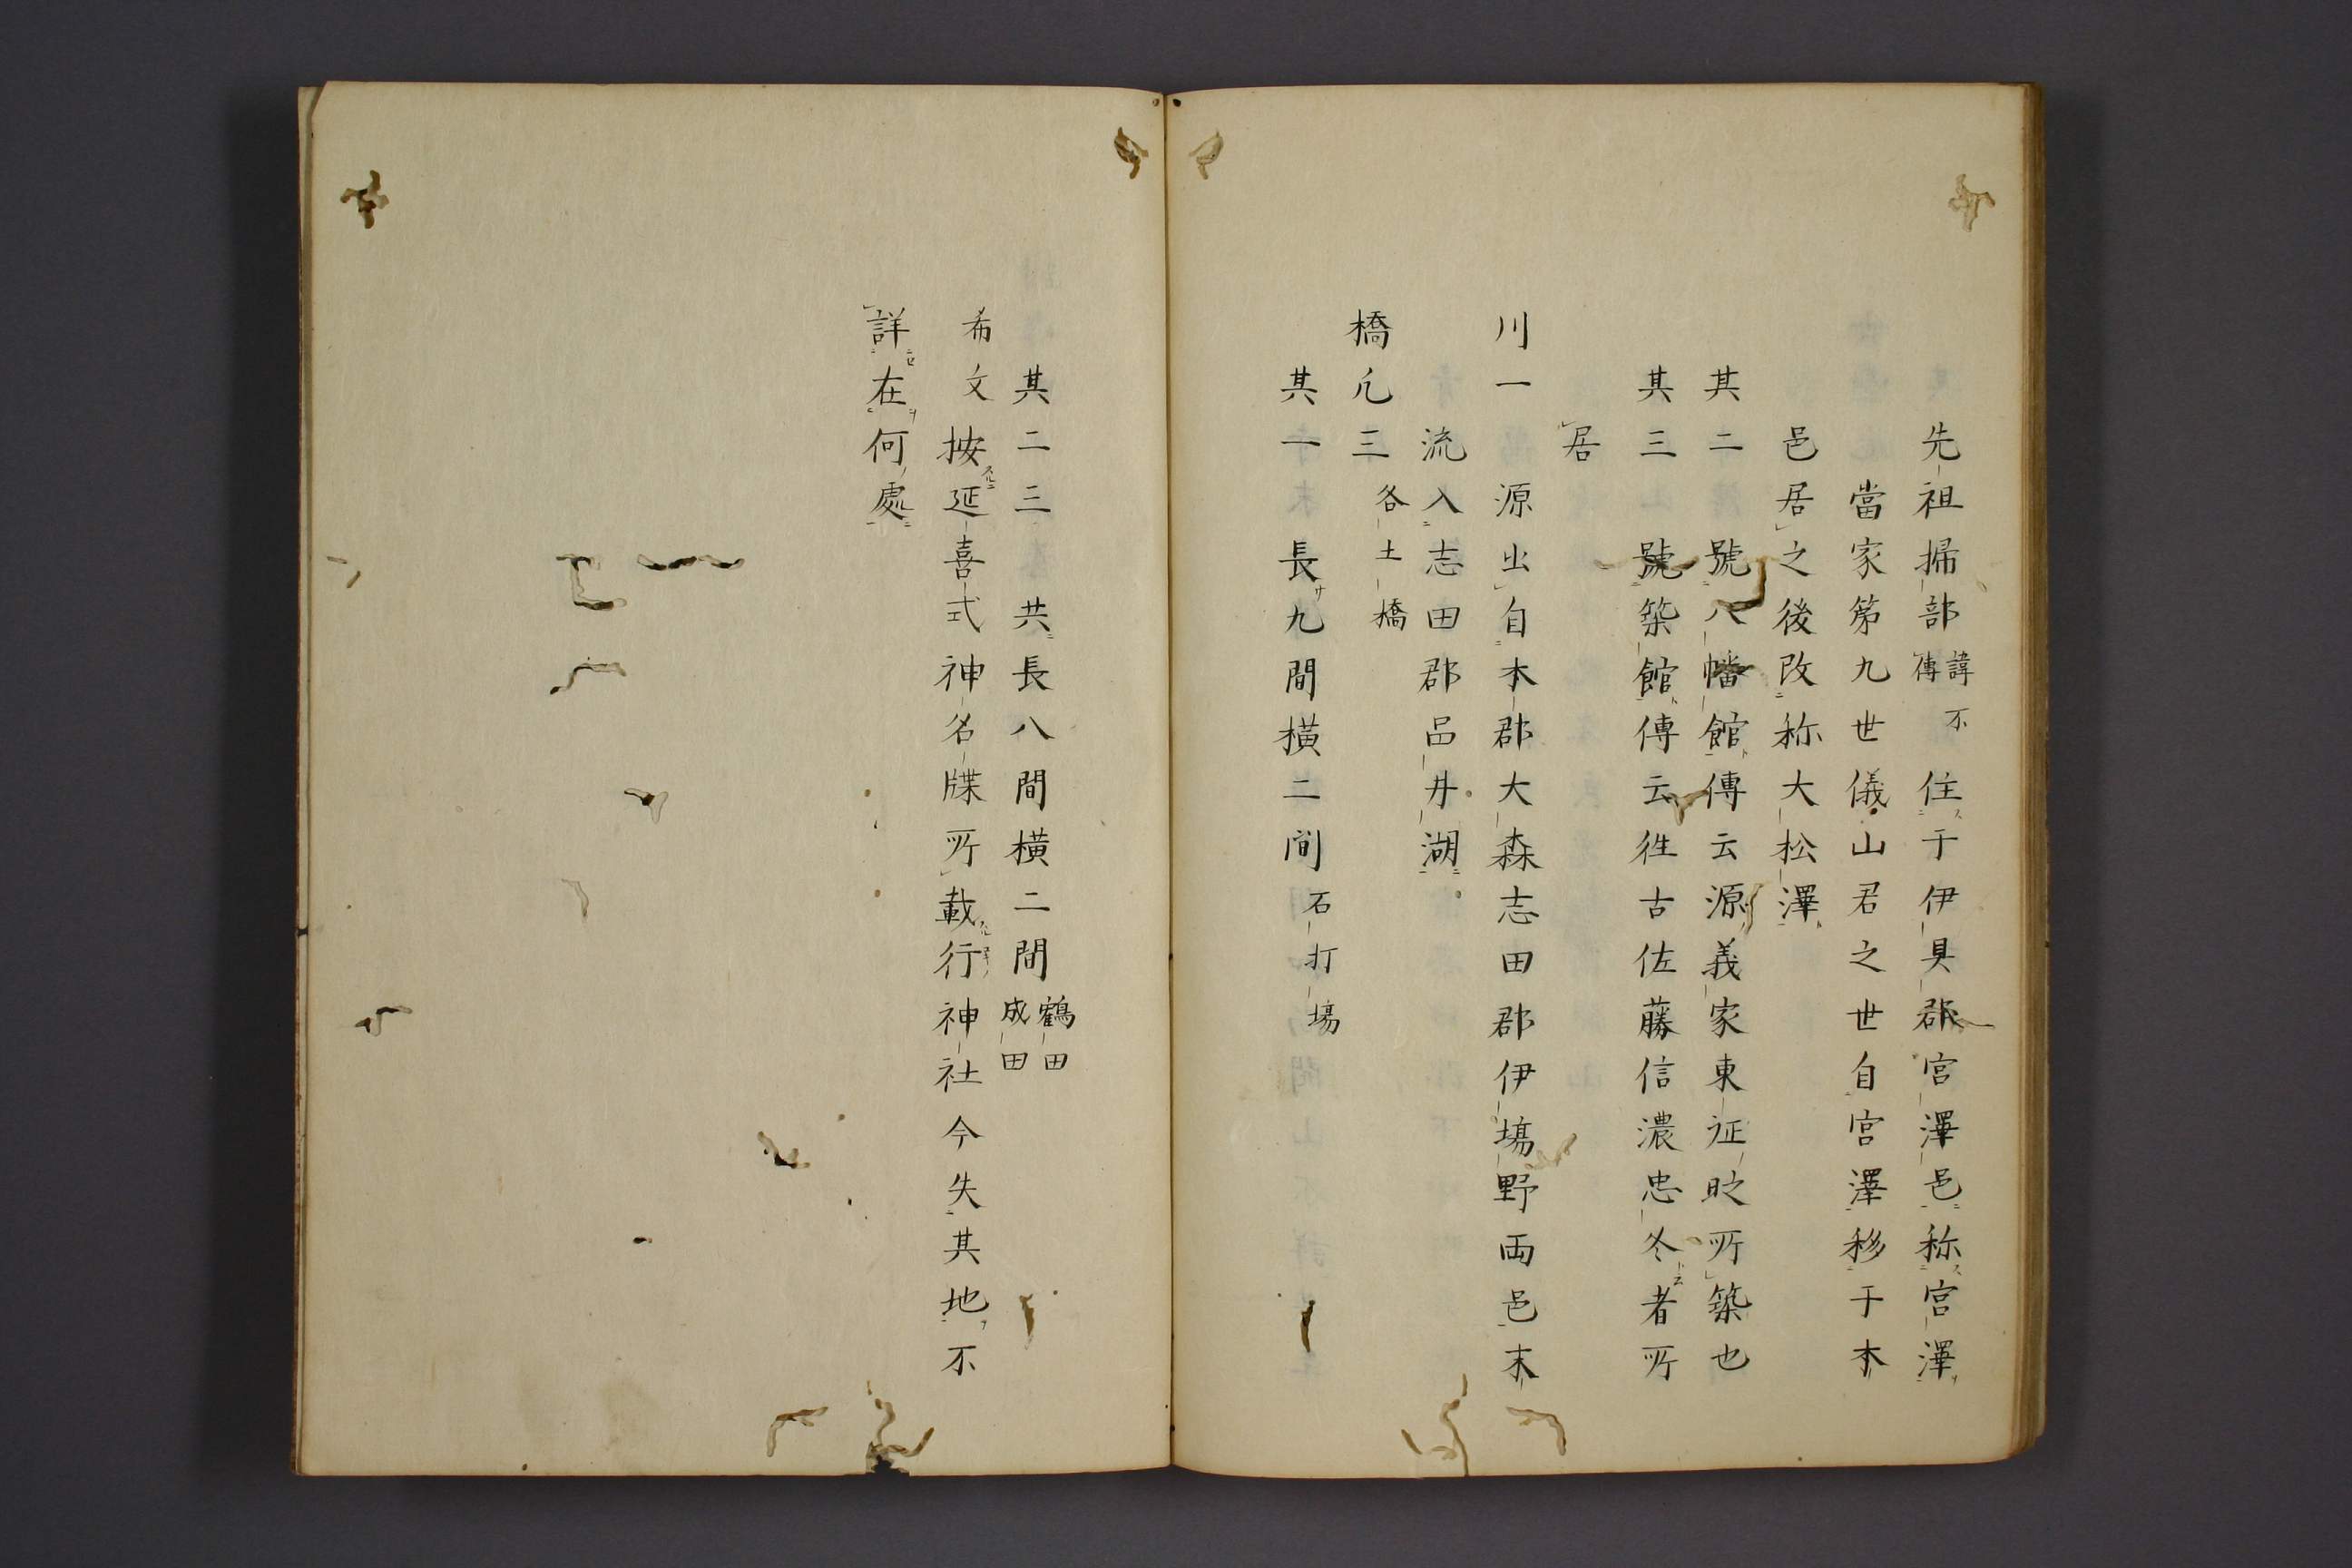 先祖掃部諱不傳住于伊具郡宮澤邑称宮澤
當家第九世儀山君之世自宮澤移于本
邑居之後改称大松澤
其二號八幡館傳云源義家東征時所築也
其三號築館傳云徃古佐藤信濃忠冬者所
居
川一源出自本郡大森志田郡伊塲野両邑末
流入志田郡品井湖
橋凢三各土橋
其一長九間横二間石打塲
其二三共長八間横二間鶴田成田
希文按延喜式神名牒所載行神社今失其地不
詳在何處